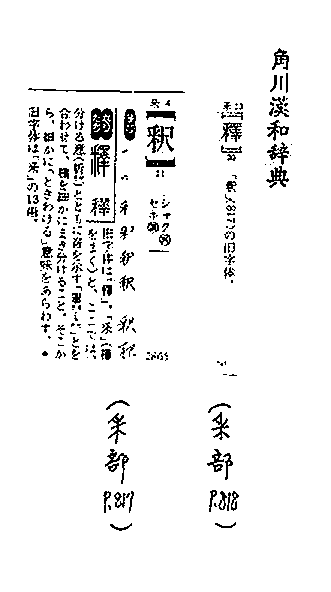 角川漢和辞典
釆 13
【釋】 20
「釈」(817)の旧字体。
(釆部 P.818)
釆 4
【釈】 11
シャク
セキ
釈 釈
釋 釋
旧字体は「釋」。「釆」(種
をまく)と、ここでは、
分ける意
とともに音を示す
とを
合わせて、種を細かにまき分けること。そこか
ら、細かに「ときわける」意味をあらわす。◆
旧字体は「釆」の13画。
(釆部 P.817)